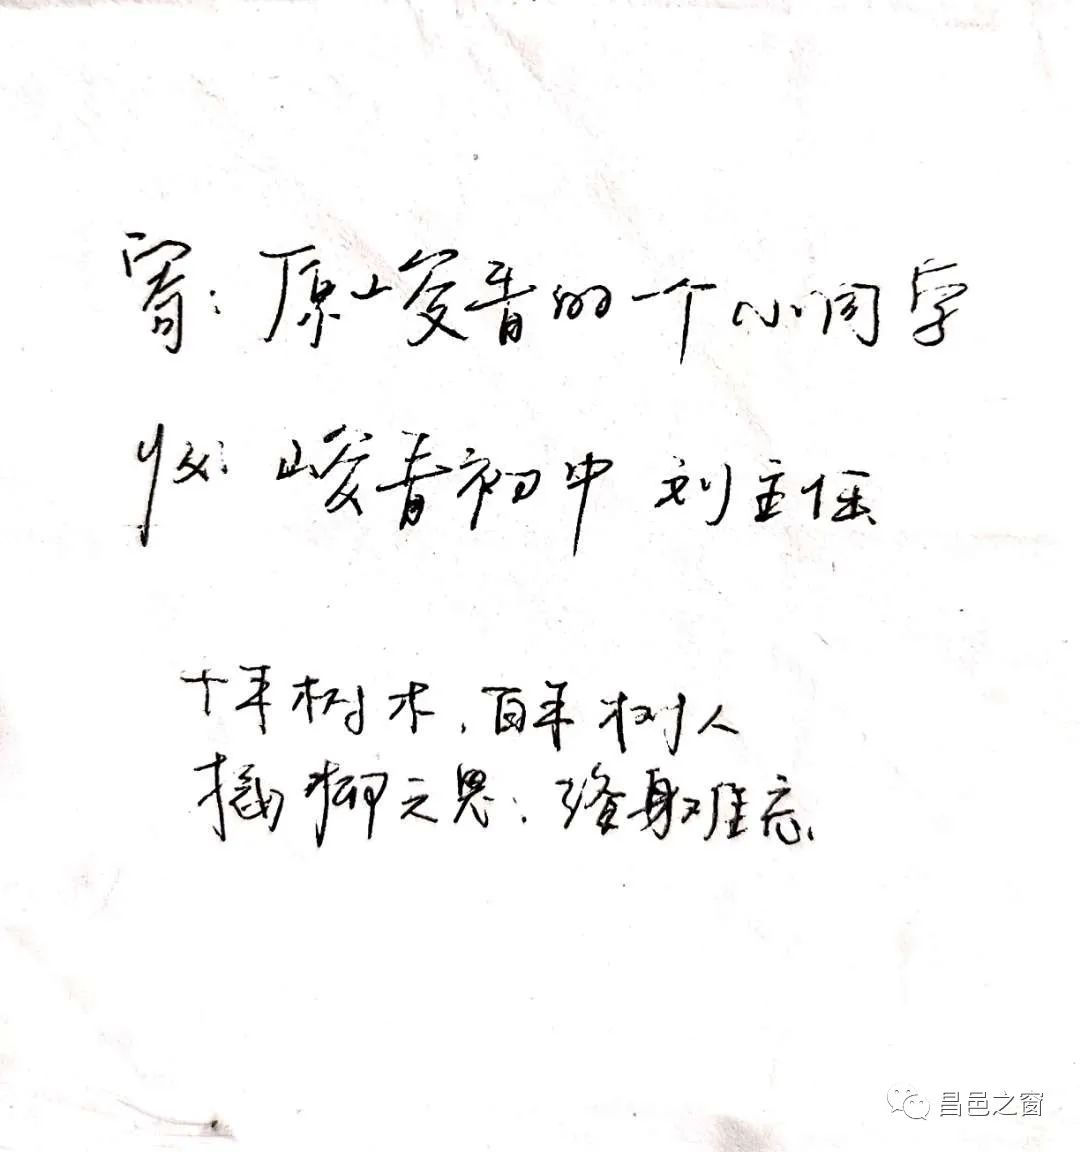 寄：原峻青的一个小同学
收：峻青初中 刘主任
十年树木，百年树人
插柳之恩，终身难忘
昌邑之窗